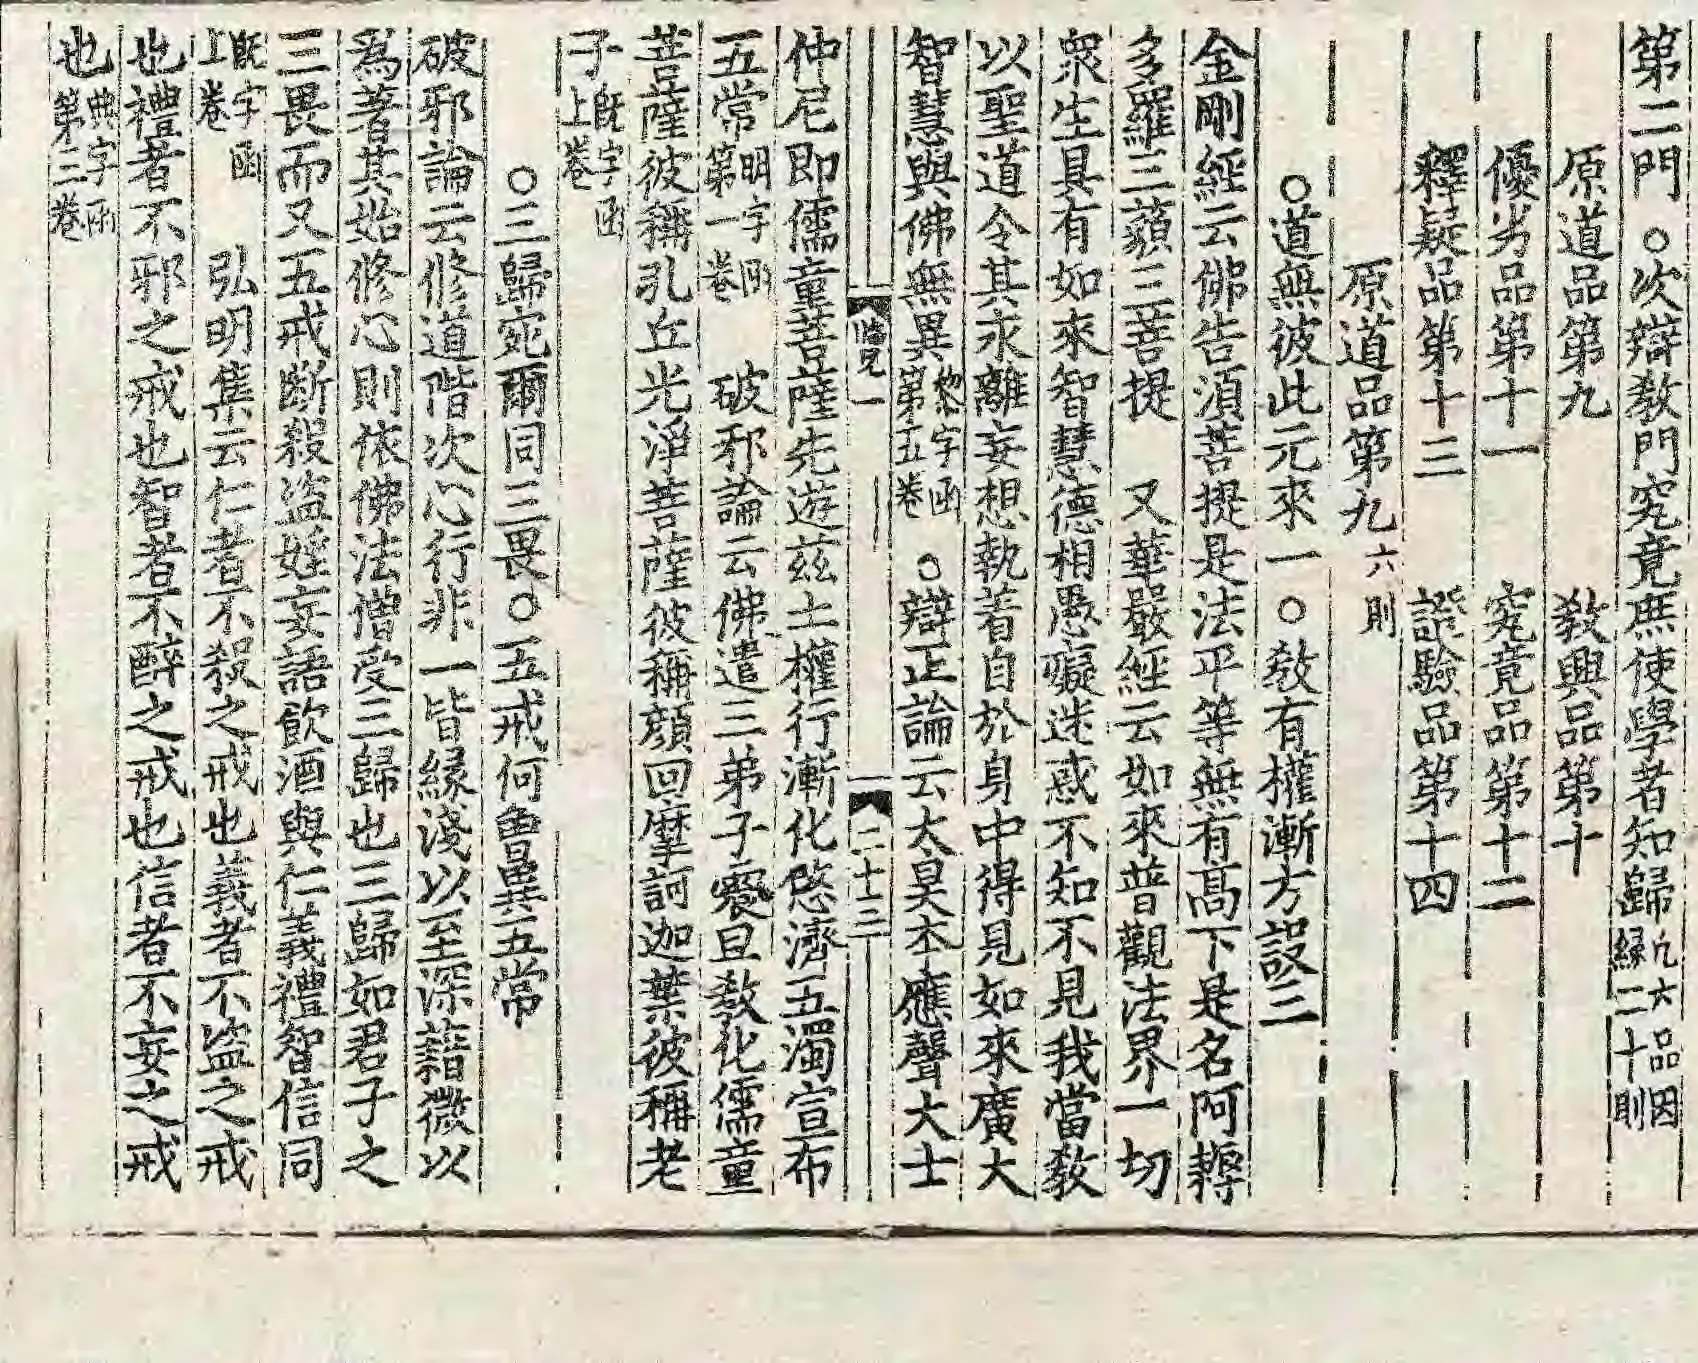 第二門　○次辯教門究竟庶使學者知歸凡六品因緣二十則
原道品第九　教興品第十
優劣品第十一　究竟品第十二
釋疑品第十三　證驗品第十四
原道品第九六則
○道無彼此元來一　○教有權漸方設三
金剛經云佛告須菩提是法平等無有高下是名阿耨
多羅三藐三菩提　又華嚴經云如來普觀法界一切
衆生具有如來智慧德相愚癡迷惑不知不見我當教
以聖道令其永離妄想執着自於身中得見如來廣大
智慧與佛無異黎字函第五卷　○辯正論云太昊本應聲大士
一
二十三
仲尼即儒童菩薩先遊茲土權行漸化愍濟五濁宣布
五常明字函第一卷　破邪論云佛遣三弟子震旦教化儒童
菩薩彼稱孔丘光淨菩薩彼稱顔回摩訶迦葉彼稱老
子旣字函上卷
○三歸宛爾同三畏○五戒何曾異五常
破邪論云修道階次心行非一皆緣淺以至深藉微以
爲著其始修心則依佛法僧受三歸也三歸如君子之
三畏而又五戒斷殺盜婬妄語飲酒與仁義禮智信同
旣字函上卷　弘明集云仁者不殺之戒也義者不盜之戒
也禮者不邪之戒也智者不醉之戒也信者不妄之戒
也典字函第三卷